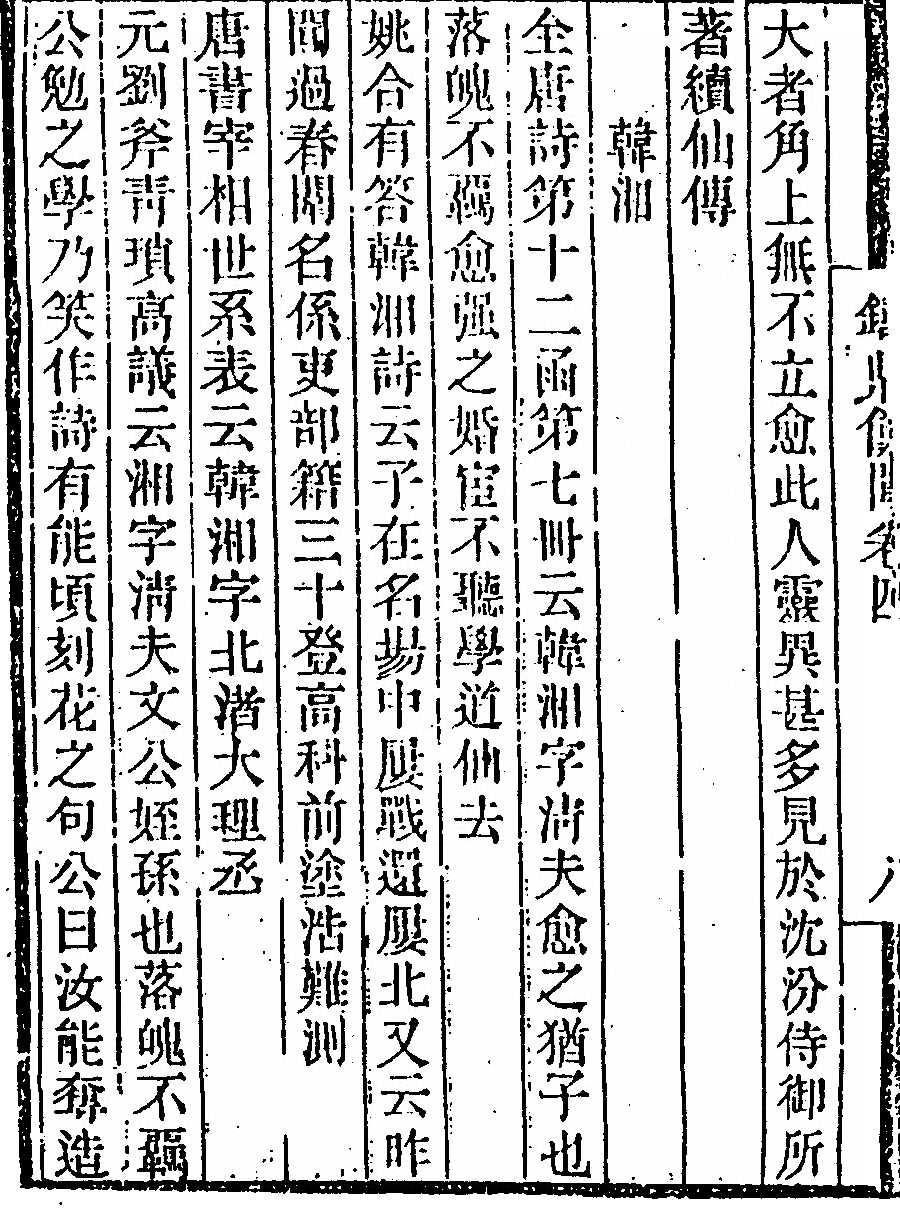 鑄鼎餘聞卷四
八
大者角上無不立愈此人靈異甚多見於沈汾侍御所
著續仙傳
韓湘
全唐詩第十二函第七冊云韓湘字清夫愈之猶子也
落魄不羈愈强之婚宦不聽學道仙去
姚合有答韓湘詩云子在名場中屢戰還屢北又云昨
聞過春關名係吏部籍三十登高科前塗浩難測
唐書宰相世系表云韓湘字北渚大理丞
元劉斧青瑣高議云湘字清夫文公姪孫也落魄不羈
公勉之學乃笑作詩有能頃刻花之句公曰汝能奪造